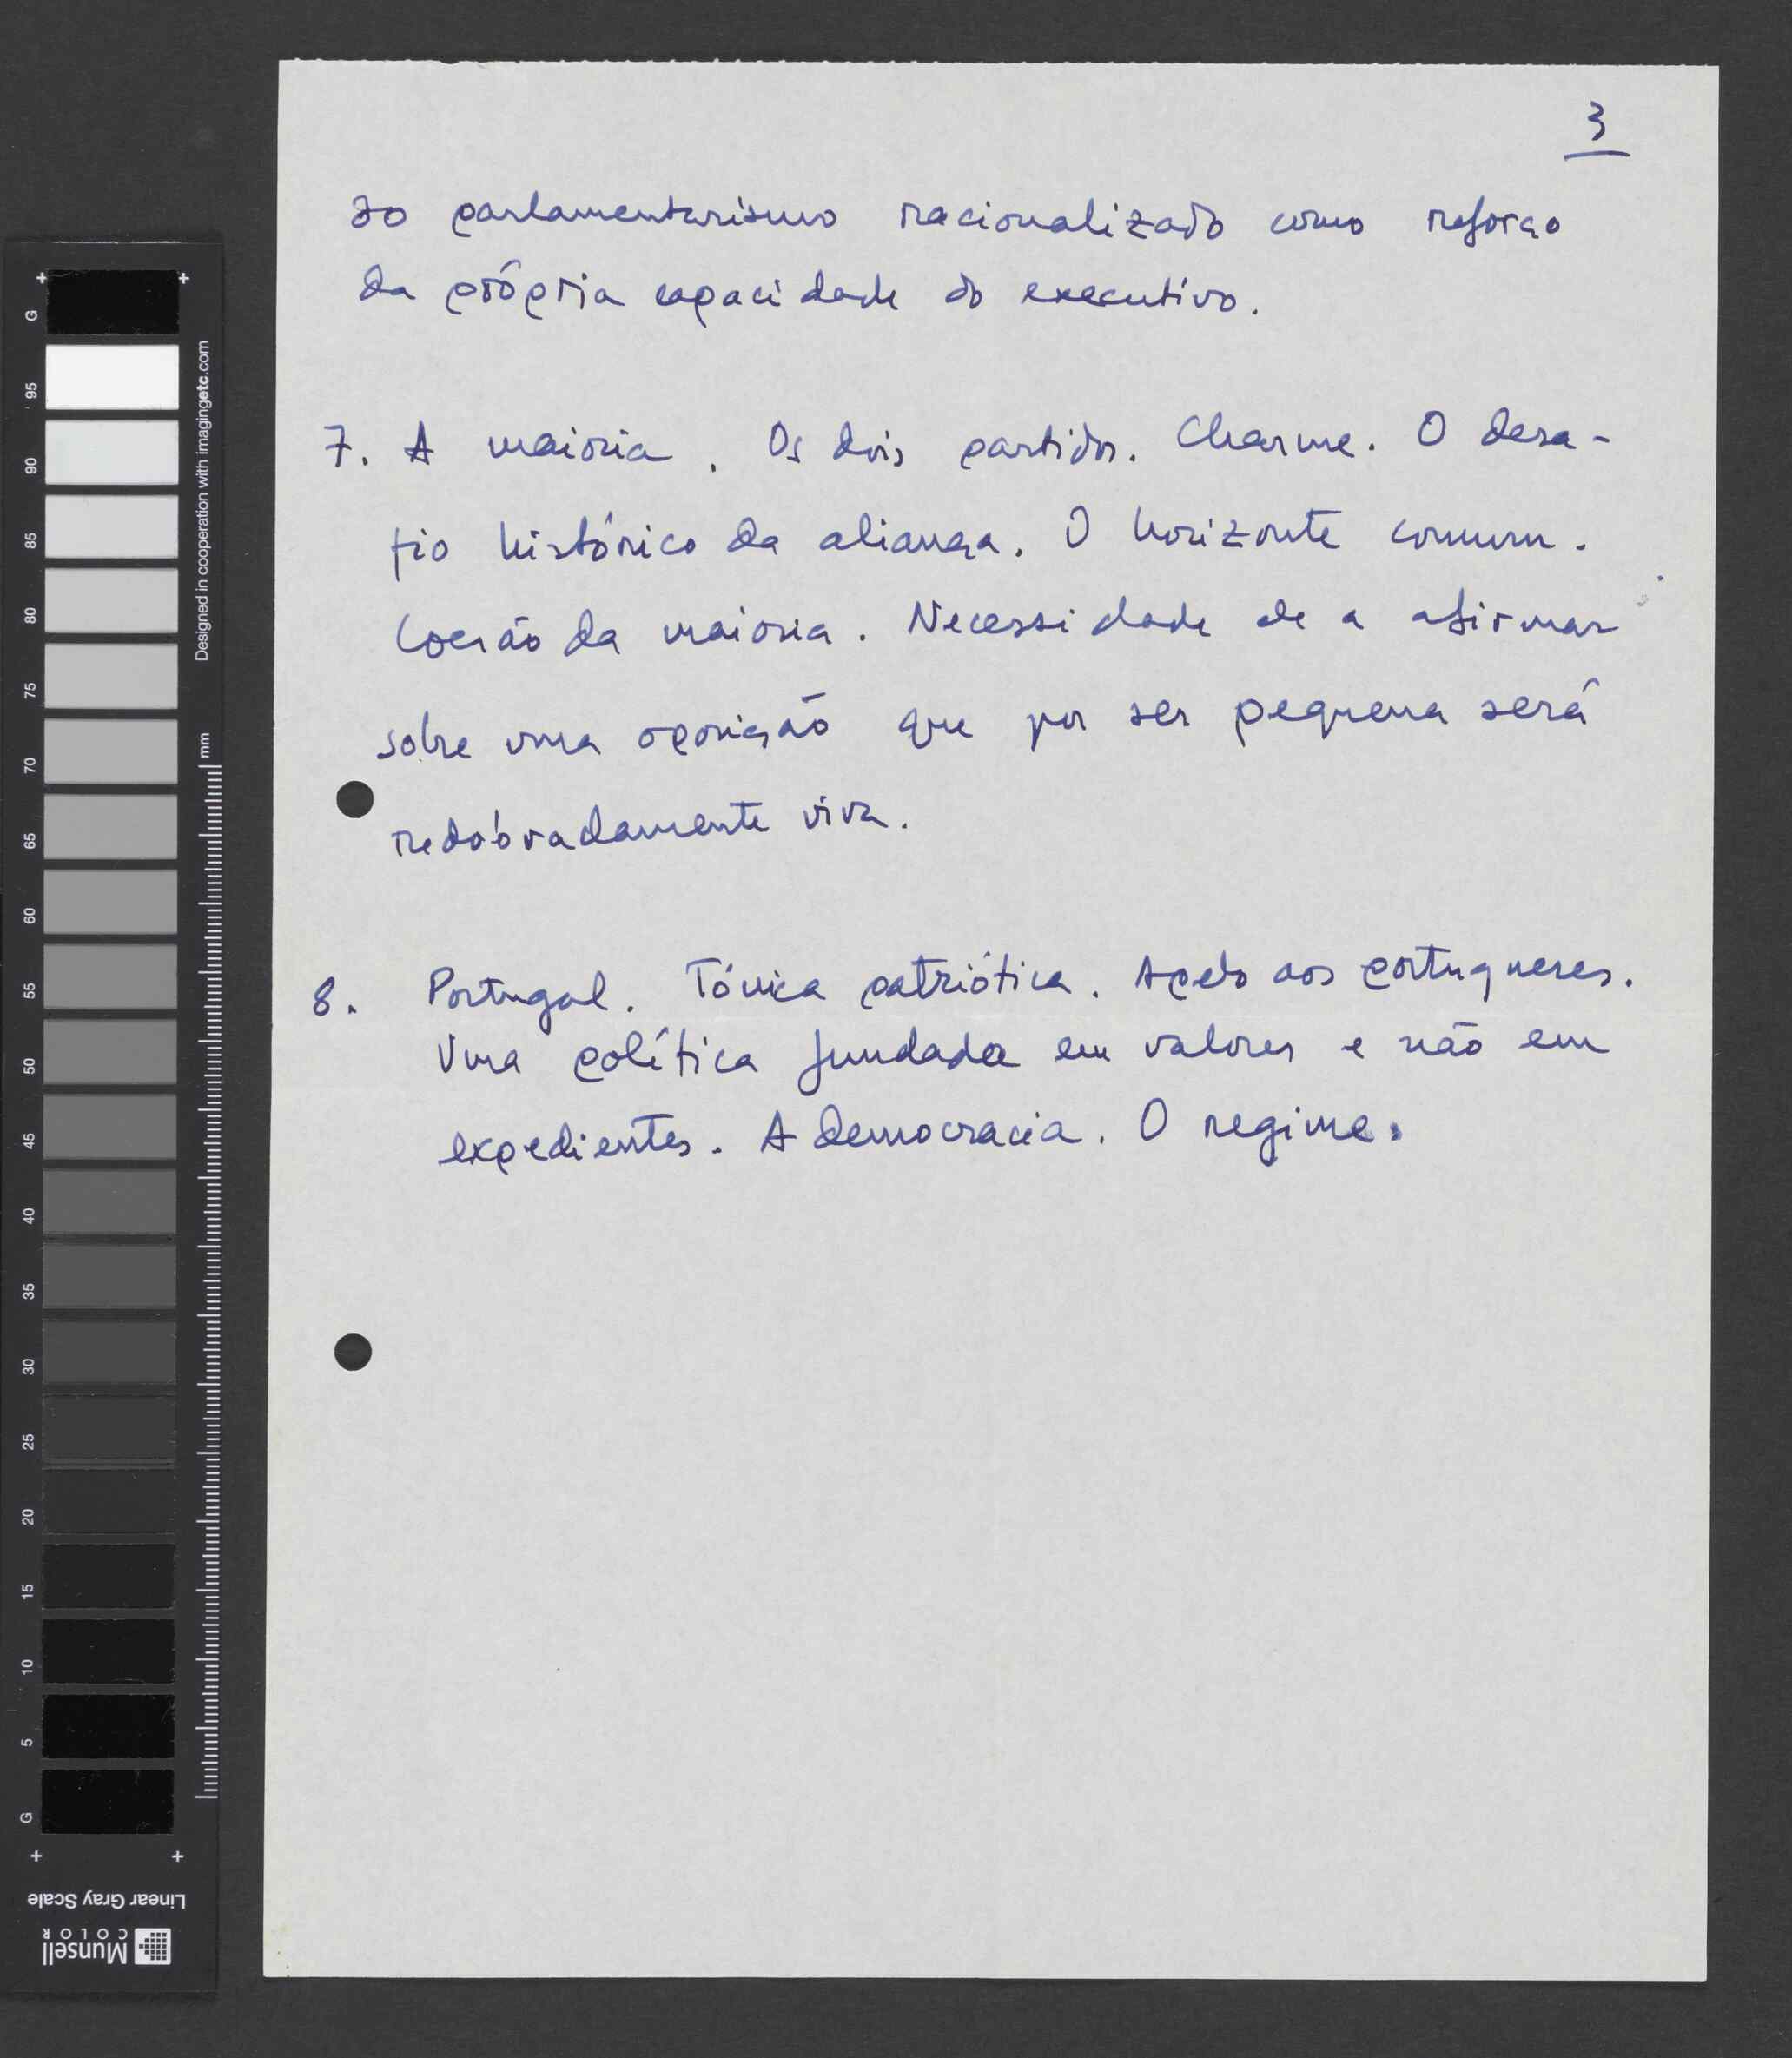 3
do parlamentarismo racionalizado como reforço
da própria capacidade do executivo.
7. A maioria. Os dois partidos. Charme. O desa-
fio histórico da aliança. O horizonte comum.
Coesão da maioria. Necessidade de a afirmar
sobre uma oposição que por ser pequena será
redobradamente viva.
8. Portugal. Tónica patriótica. Apelo aos portugueses.
Uma política fundada em valores e não em
expedientes. A democracia. O regime.
G
95
90
85
80
75
70
65
60
55
50
45
40
35
30
25
20
15
10
5
G
mm
Designed in cooperation with imagingetc.com
Linear Gray Scale
Munsell
COLOR